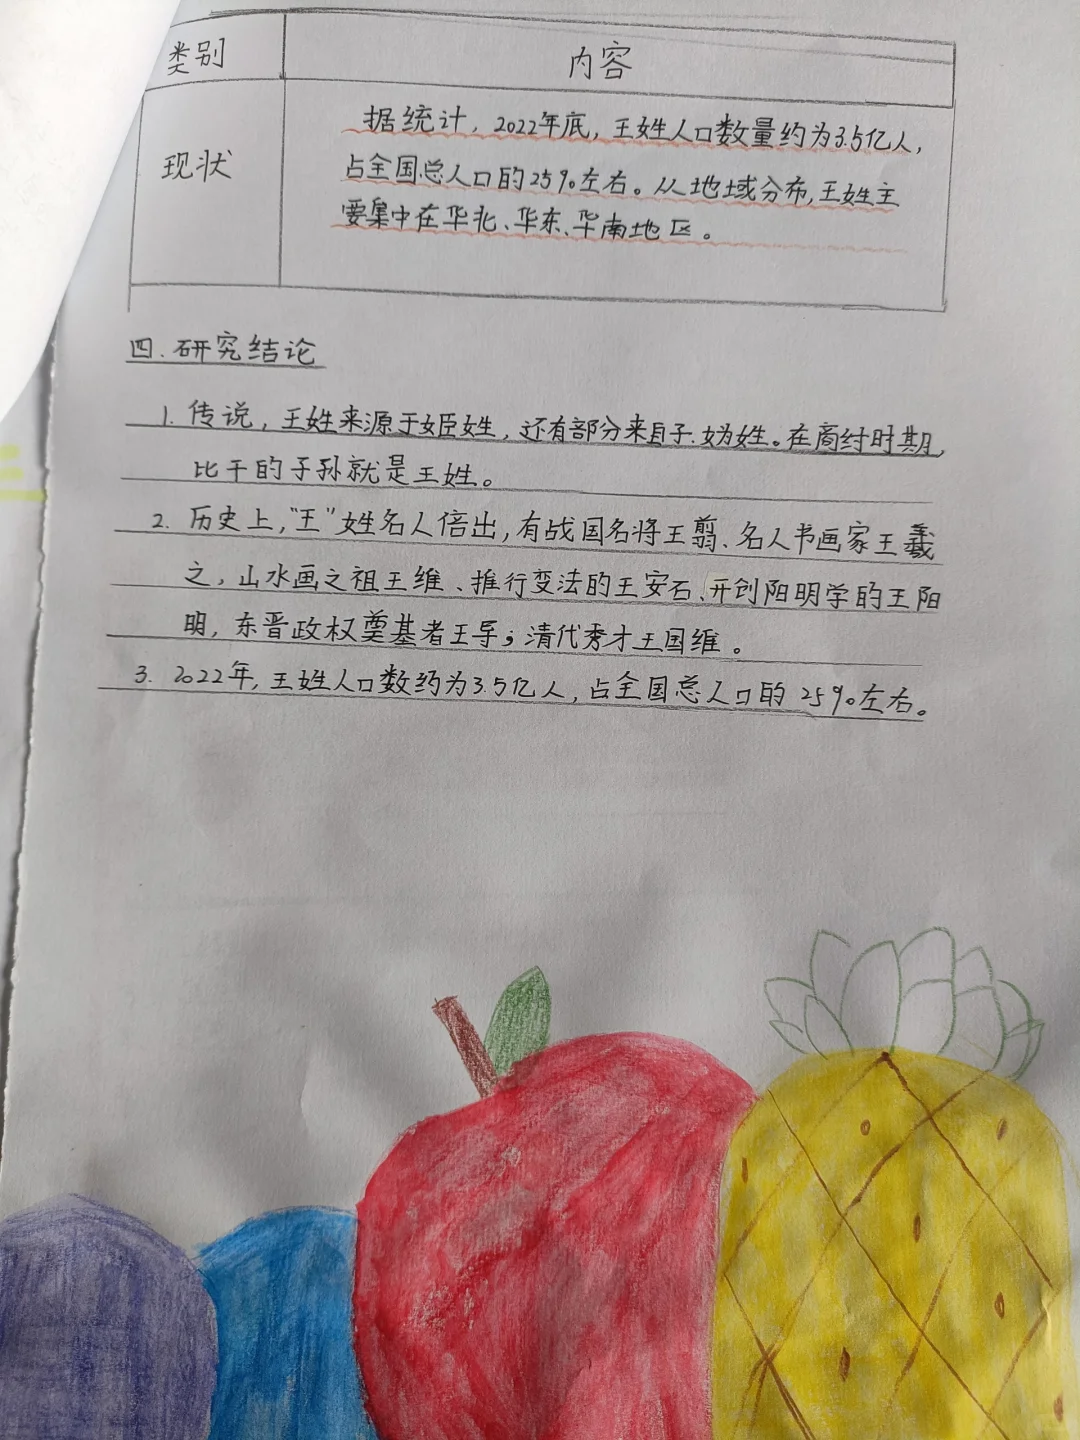 类别 内容
现状
据统计，2022年底，王姓人口数量约为3.5亿人，
占全国总人口的25%左右。从地域分布，王姓主
要集中在华北、华东、华南地区。
四.研究结论
1. 传说，王姓来源于姬姓，还有部分来自子.妫姓。在商纣时期，
比干的子孙就是王姓。
2. 历史上，"王"姓名人倍出，有战国名将王翦、名人书画家王羲
之，山水画之祖王维、推行变法的王安石、开创阳明学的王阳
明，东晋政权奠基者王导；清代秀才王国维。
3. 2022年，王姓人口数约为3.5亿人，占全国总人口的25%左右。